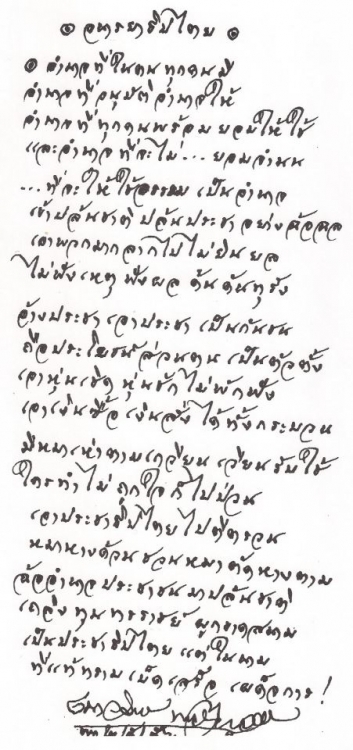 ๏ อนารยาธิปไตย ๏
๏ อำนาจที่ในตน ทุกคนมี
อำนาจที่อนุมัติอำนาจให้
อำนาจที่ทุกคนพร้อมยอมให้ใช้
และอำนาจที่จะไม่...ยอมจำนน
...ที่จะให้ใช้อธรรมเป็นอำนาจ
เข้าปล้นชาติ ปล้นประชา อย่างฉ้อฉล
เอาพวกมากลากไปไม่ยินยล
ไม่ฟังเหตุ ฟังผล ดันดันทุรัง
อ้างประชา เอาประชา เป็นกันชน
ถือประโยชน์ส่วนตน เป็นตัวตั้ง
เอาหุ่นเชิด หุ่นชัก ไม่พักฟัง
เอาเงินซื้อ เงินสั่ง ได้ทั้งกระบวน
มีหมาเห่าตามเกวียน เวียนรับใช้
ใครทำไม่ถูกใจก็ไปป่วน
เอาประชาธิปไตยไปตีตรวน
หมาหางด้วนชวนหมาตัดหางตาม
ฉ้ออำนาจประชาชนมาปล้นชาติ
เถลิงทุนทรราชย์ ผูกขาดสนาม
เป็นประชาธิปไตย แต่ในนาม
ที่แท้ทรามเบ็ดเสร็จ เผด็จการ !